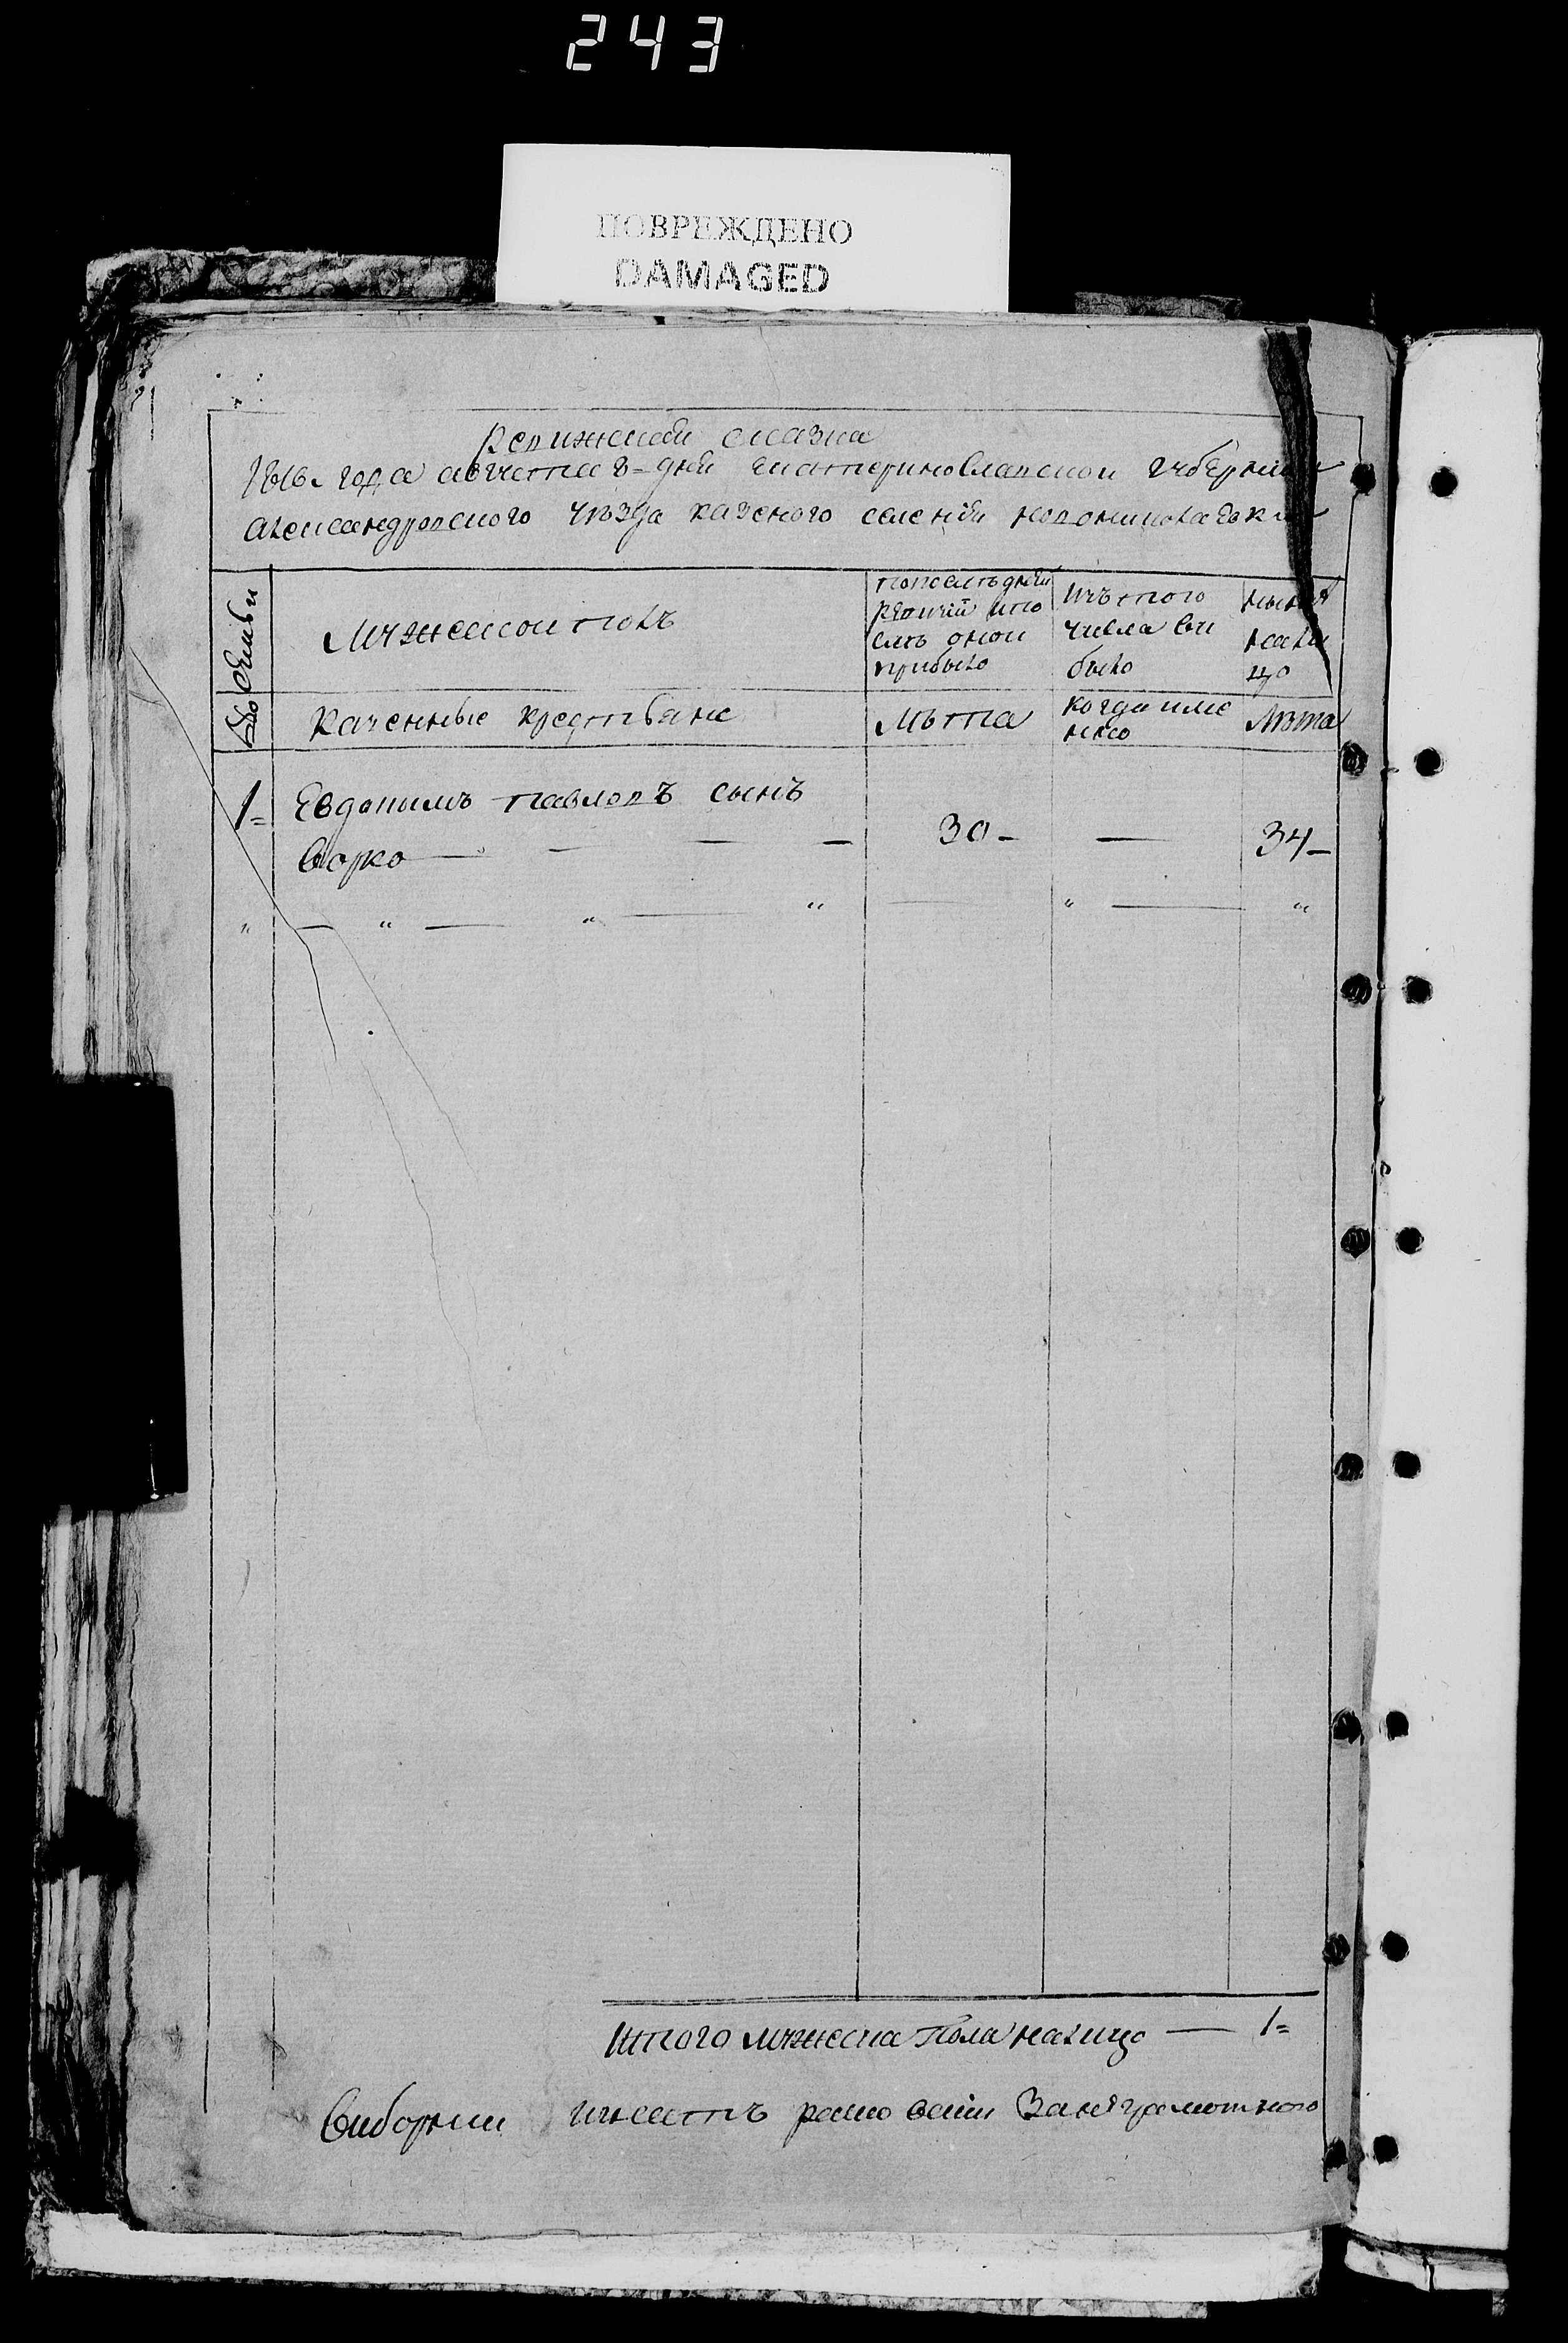 243
ПОВРЕЖДЕНО
DAMAGED
Ревижская сказка
1816. года августа 8= дня Екатериновлавской губернии
Александровского уѣзда казеного селенія Новониколаевки
№о семьи
Мужеской полъ
попослѣдней ревизіи и после оной прибыло
Изъ того числа выбыло
ныне на лицо
Казенные крестьяне
Лѣта
Когда именно
Лѣта
1= Евдокимъ Павловъ сынъ
30 — 34
Итого мужеска пола налицо — 1=
Виборний за неграмотного